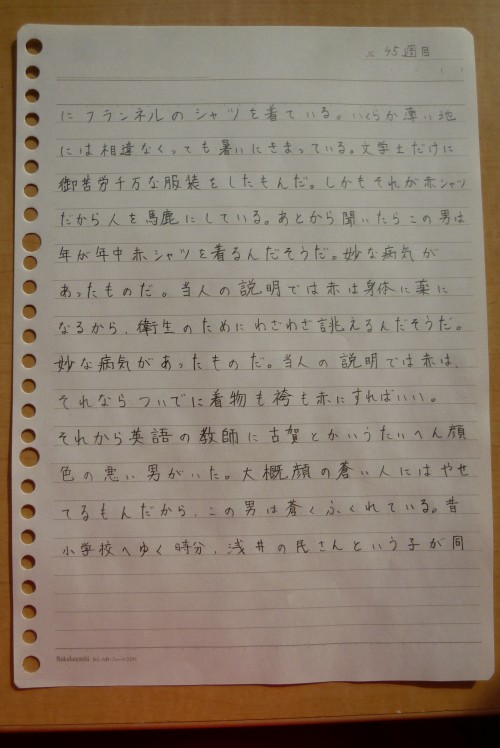 × 45週目
にフランネルのシャツを着ている。いくらか薄い地
には相違なくっても暑いにきまっている。文学士だけに
御苦労千万な服装をしたもんだ。しかもそれが赤シャツ
だから人を馬鹿にしている。あとから聞いたらこの男は
年が年中赤シャツを着るんだそうだ。妙な病気が
あったものだ。当人の説明では赤は身体に薬に
なるから、衛生のためにわざわざ誂えるんだそうだ。
妙な病気があったものだ。当人の説明では赤は、
それならついでに着物も袴も赤にすればいい。
それから英語の教師に古賀とかいうたいへん顔
色の悪い男がいた。大概顔の蒼い人はやせ
てるもんだから、この男は蒼くふくれている。昔
小学校へゆく時分、浅井の民さんという子が同